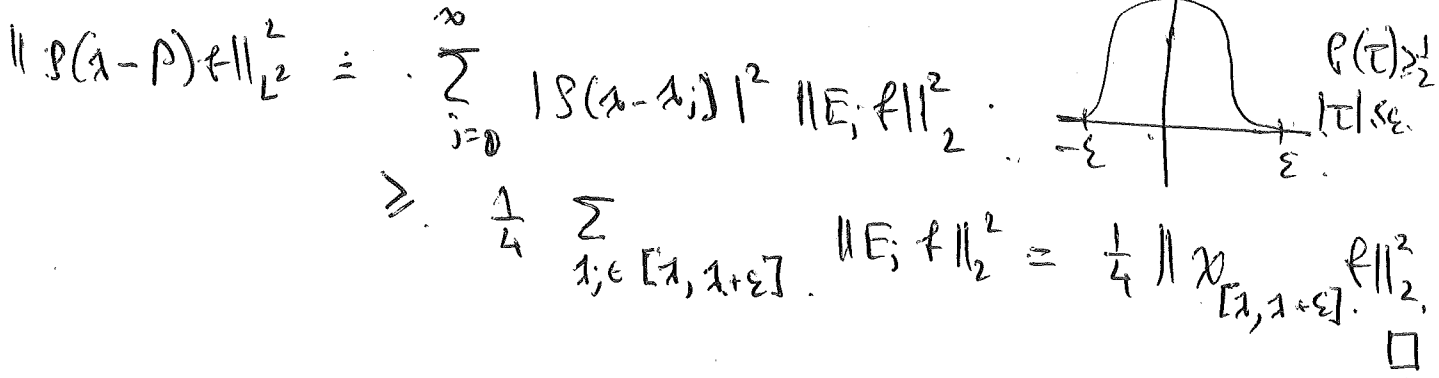 ‖ρ(λ-P)f‖²_{L²} = ∑_{j=0}^{∞} |ρ(λ-λ_j)|² ‖E_j f‖₂²
ρ(τ) ≥ 1/2
|τ| ≤ ε.
-ε ε
≥ 1/4 ∑_{λ_j ∈ [λ, λ+ε]} ‖E_j f‖₂² = 1/4 ‖χ_{[λ, λ+ε]} f‖₂².
□